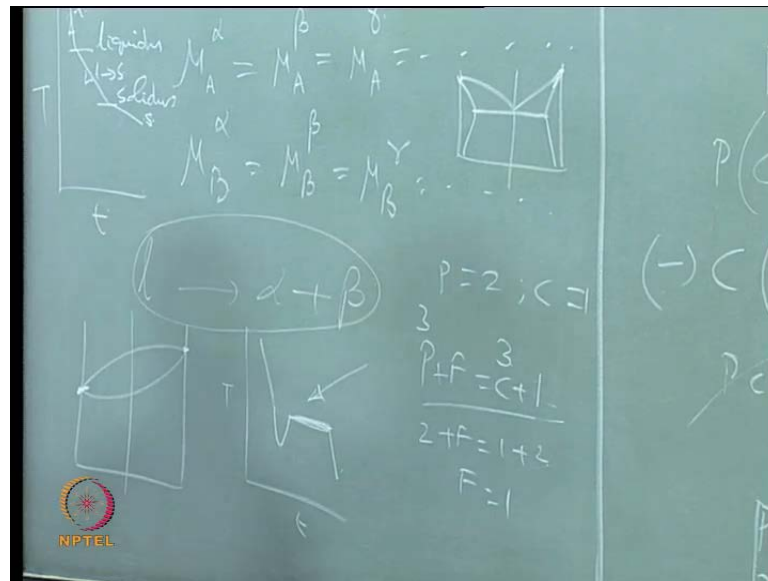 liquidus
l→s
solidus
s
T
t
M_A^α = M_A^β = M_A^γ = . . . . .
M_B^α = M_B^β = M_B^γ = . . . .
l → α + β
T
t
P = 2 ; C = 1
3 3
P+F = C+1
2+F = 1+2
F = 1
P(
(-) C (
P C
P
NPTEL